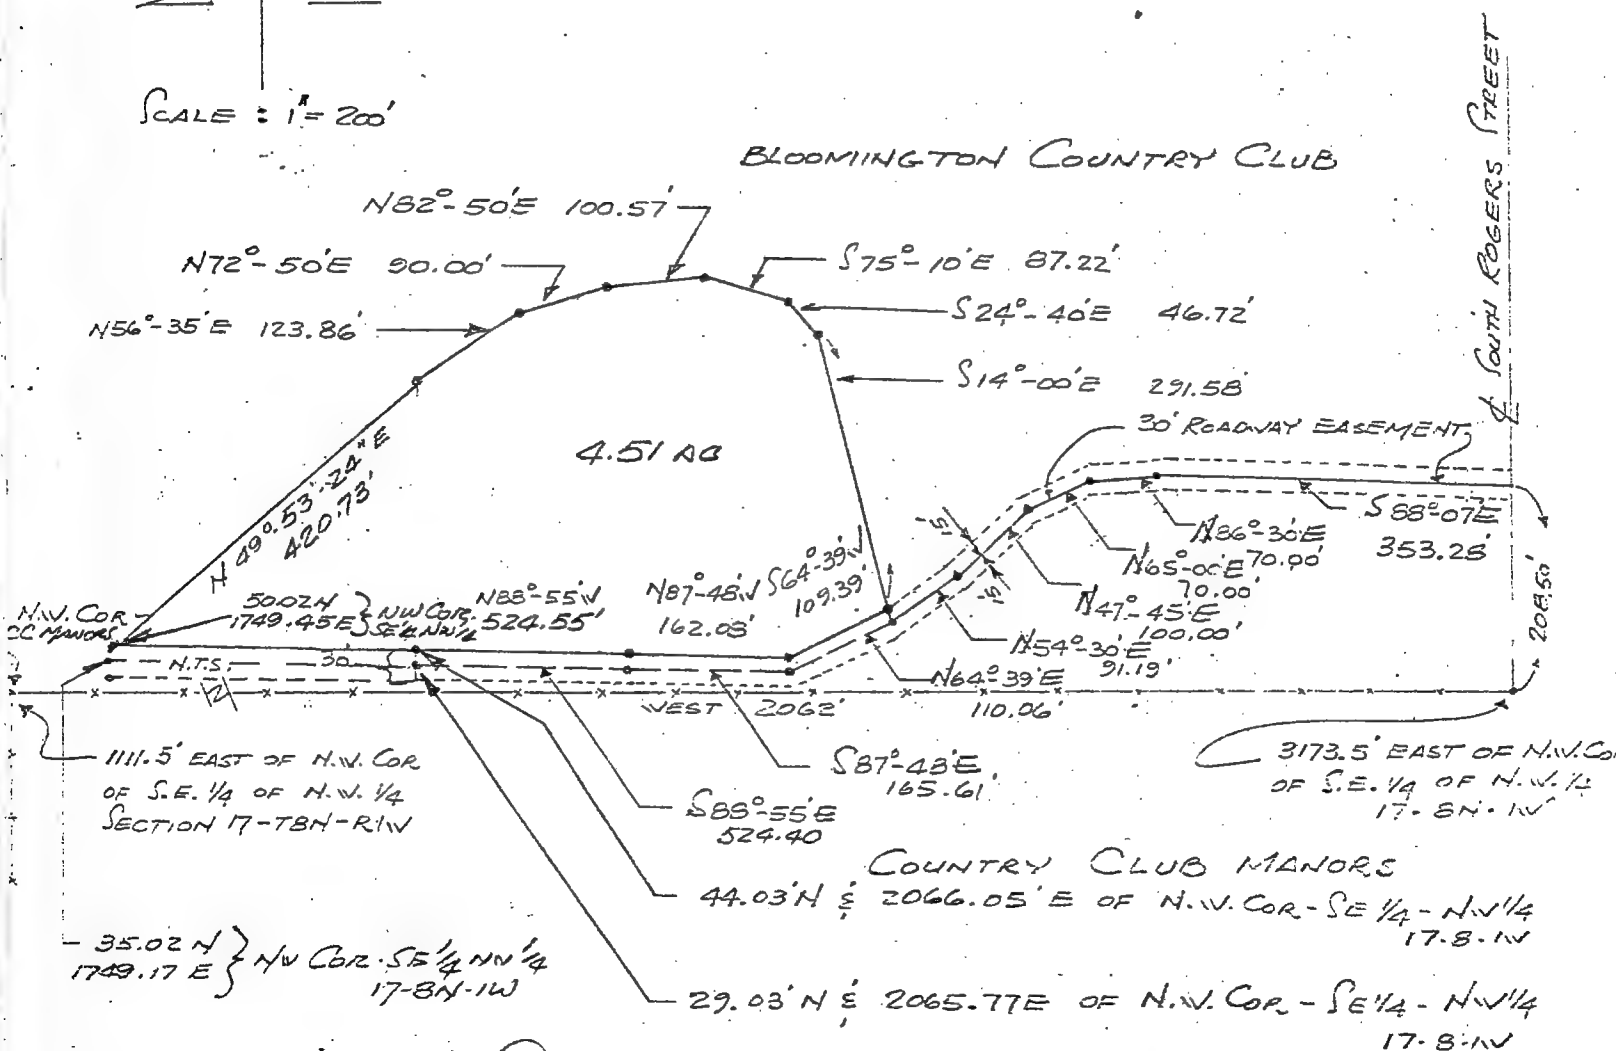 SCALE : 1" = 200'
BLOOMINGTON COUNTRY CLUB
SOUTH ROGERS STREET
N82°-50'E 100.57'
N72°-50'E 90.00'
S75°-10'E 87.22'
N56°-35'E 123.86'
S24°-40'E 46.72'
S14°-00'E 291.58'
30' ROADWAY EASEMENT
4.51 AC
N 49°-53'-24" E
420.73'
S88°-07'E
353.28'
N86°-30'E
70.00'
N65°-00'E
70.00'
N47°-45'E
100.00'
N54°-30'E
91.19'
N64°-39'E
110.06'
15'
15'
208.50'
S64°-39'W
109.39'
N87°-48'W
162.03'
N88°-55'W
524.55'
50.02 N
1749.45 E } NW COR.
SE¼ NW¼
N.W. COR
CC MANORS
N.T.S.
30'
WEST 2062'
1111.5' EAST OF N.W. COR
OF S.E. 1/4 OF N.W. 1/4
SECTION 17-T8N-R1W
S87°-48'E
165.61'
S88°-55'E
524.40
3173.5' EAST OF N.W. CO
OF S.E. 1/4 OF N.W. 1/4
17-8N-1W
COUNTRY CLUB MANORS
44.03'N & 2066.05'E OF N.W. COR - SE 1/4 - NW 1/4
17-8-1W
35.02 N
1749.17 E } NW COR. SE 1/4 NW 1/4
17-8N-1W
29.03'N & 2065.77E OF N.W. COR - SE 1/4 - NW 1/4
17-8-1W